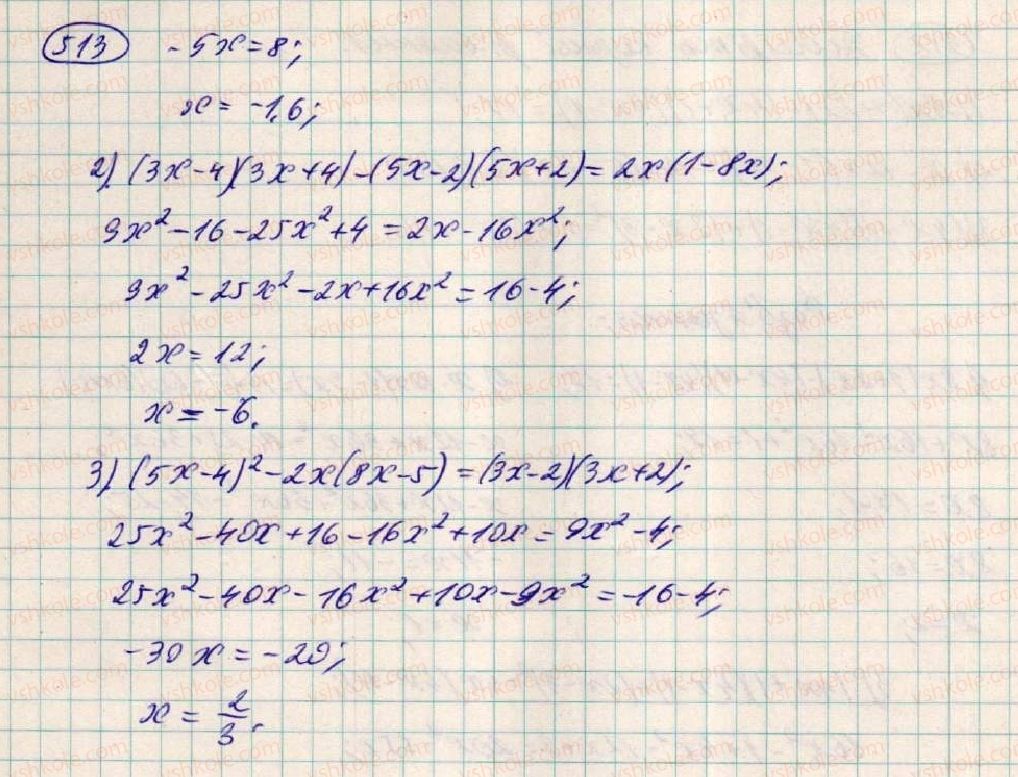 513 - 5x = 8;
x = -1,6;
2) (3x-4)(3x+4)-(5x-2)(5x+2) = 2x(1-8x);
9x² - 16 - 25x² + 4 = 2x - 16x²;
9x² - 25x² - 2x + 16x² = 16 - 4;
2x = 12;
x = -6.
3) (5x-4)² - 2x(8x-5) = (3x-2)(3x+2);
25x² - 40x + 16 - 16x² + 10x = 9x² - 4;
25x² - 40x - 16x² + 10x - 9x² = -16 - 4;
-30x = -20;
x = 2/3.